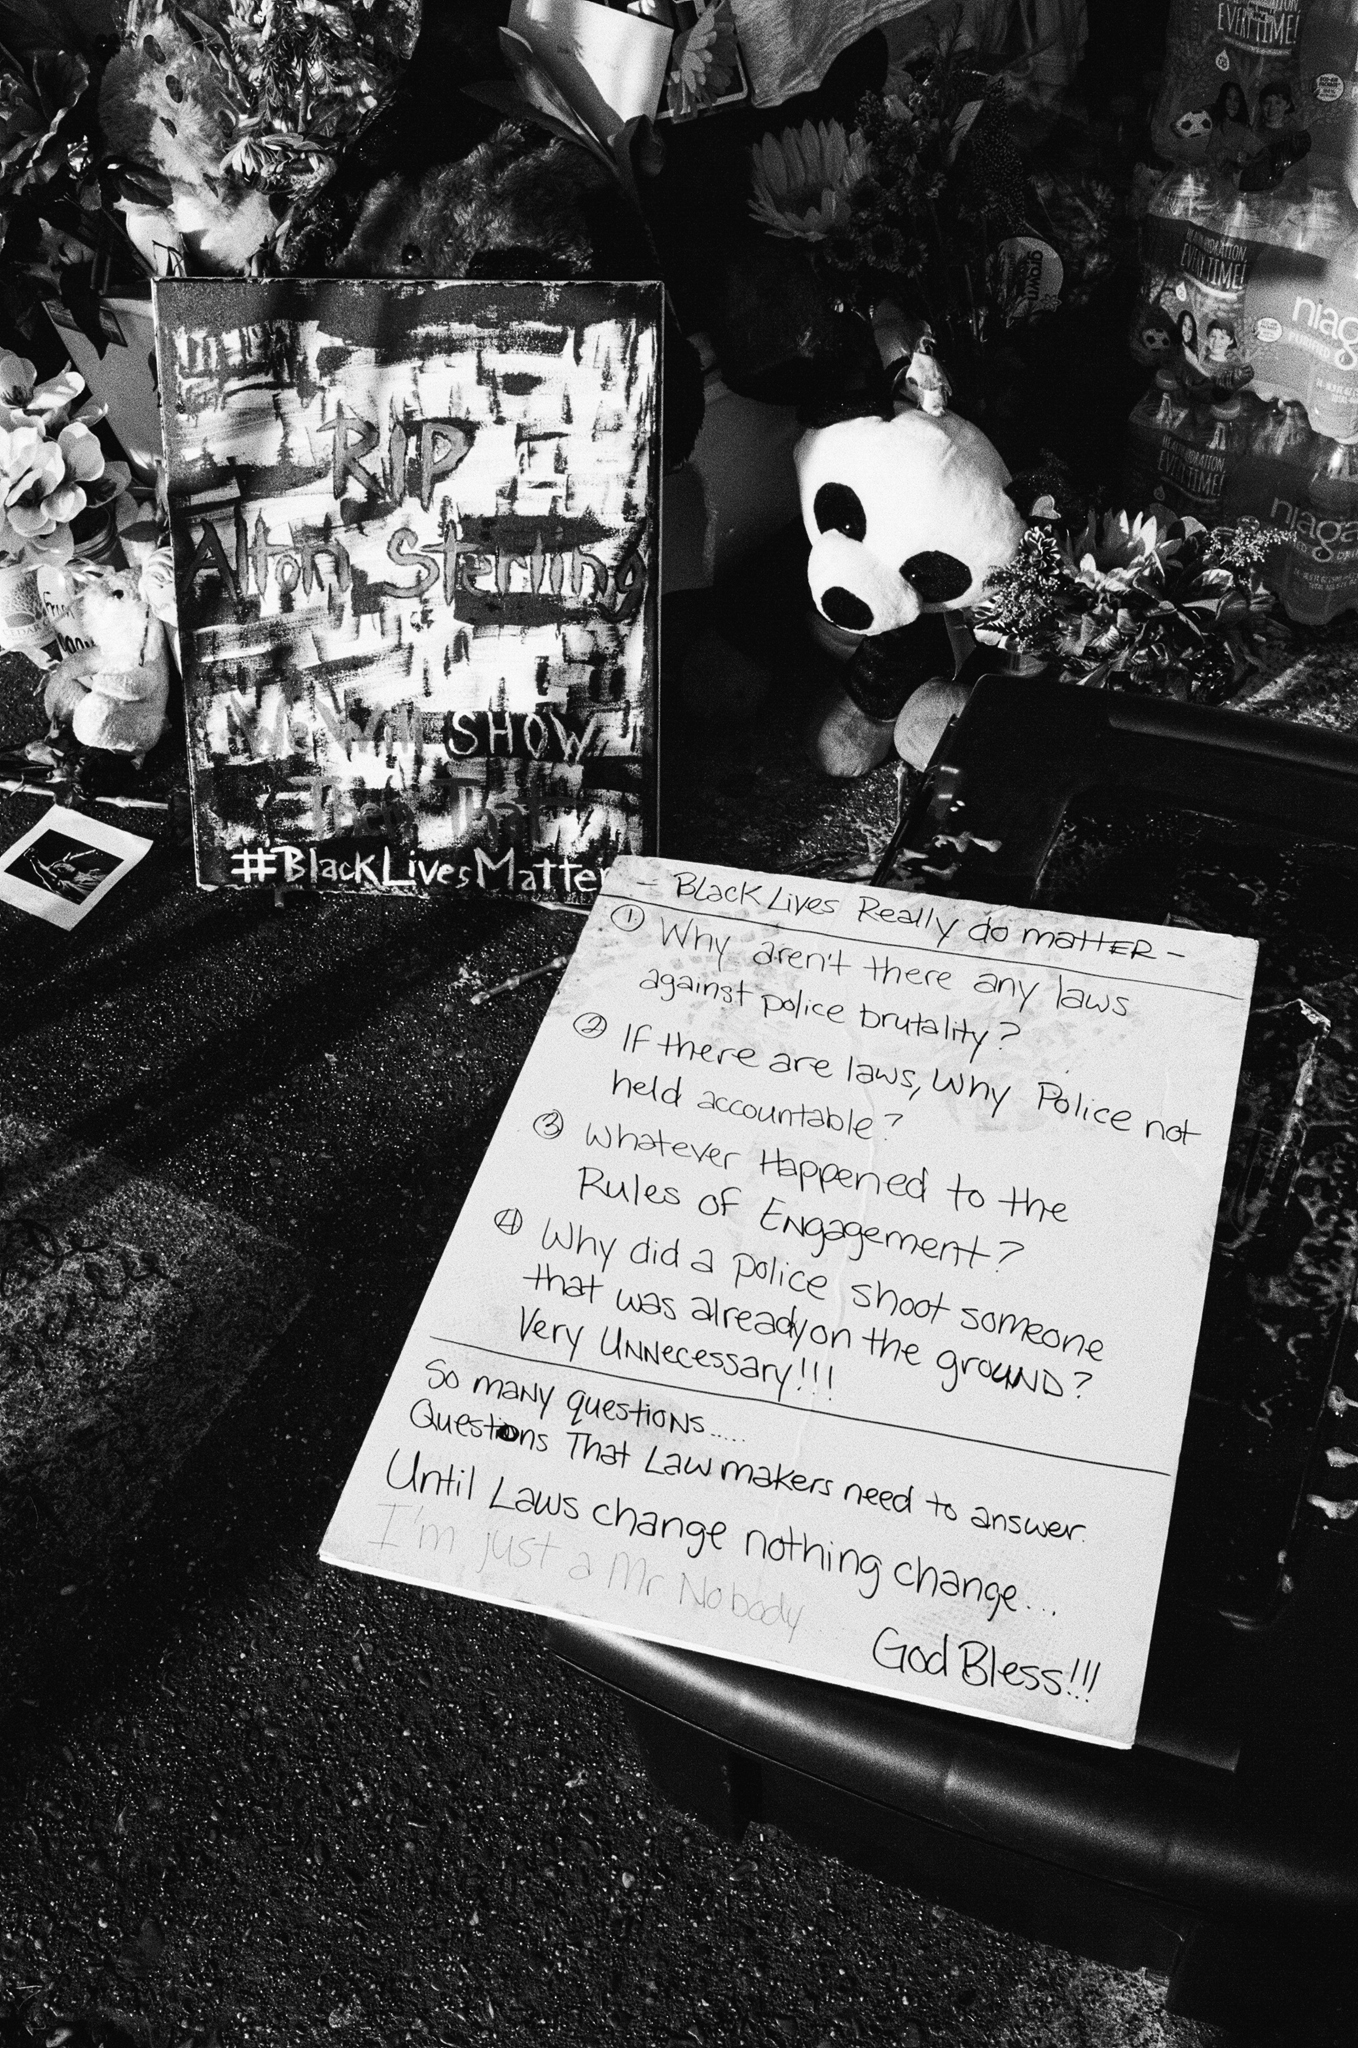 RIP
Alton Sterling
We Will SHOW
Them That
#BlackLivesMatter
- Black Lives Really do matter -
① Why aren't there any laws
against police brutality?
② If there are laws, why Police not
held accountable?
③ Whatever Happened to the
Rules of Engagement?
④ Why did a police shoot someone
that was already on the ground?
Very Unnecessary!!!
So many questions.....
Questions That Lawmakers need to answer.
Until Laws change nothing change...
I'm just a Mr Nobody
God Bless!!!
EVERYTIME!
EVERYTIME!
niag
PURIFIED
EVERYTIME!
niaga
grown